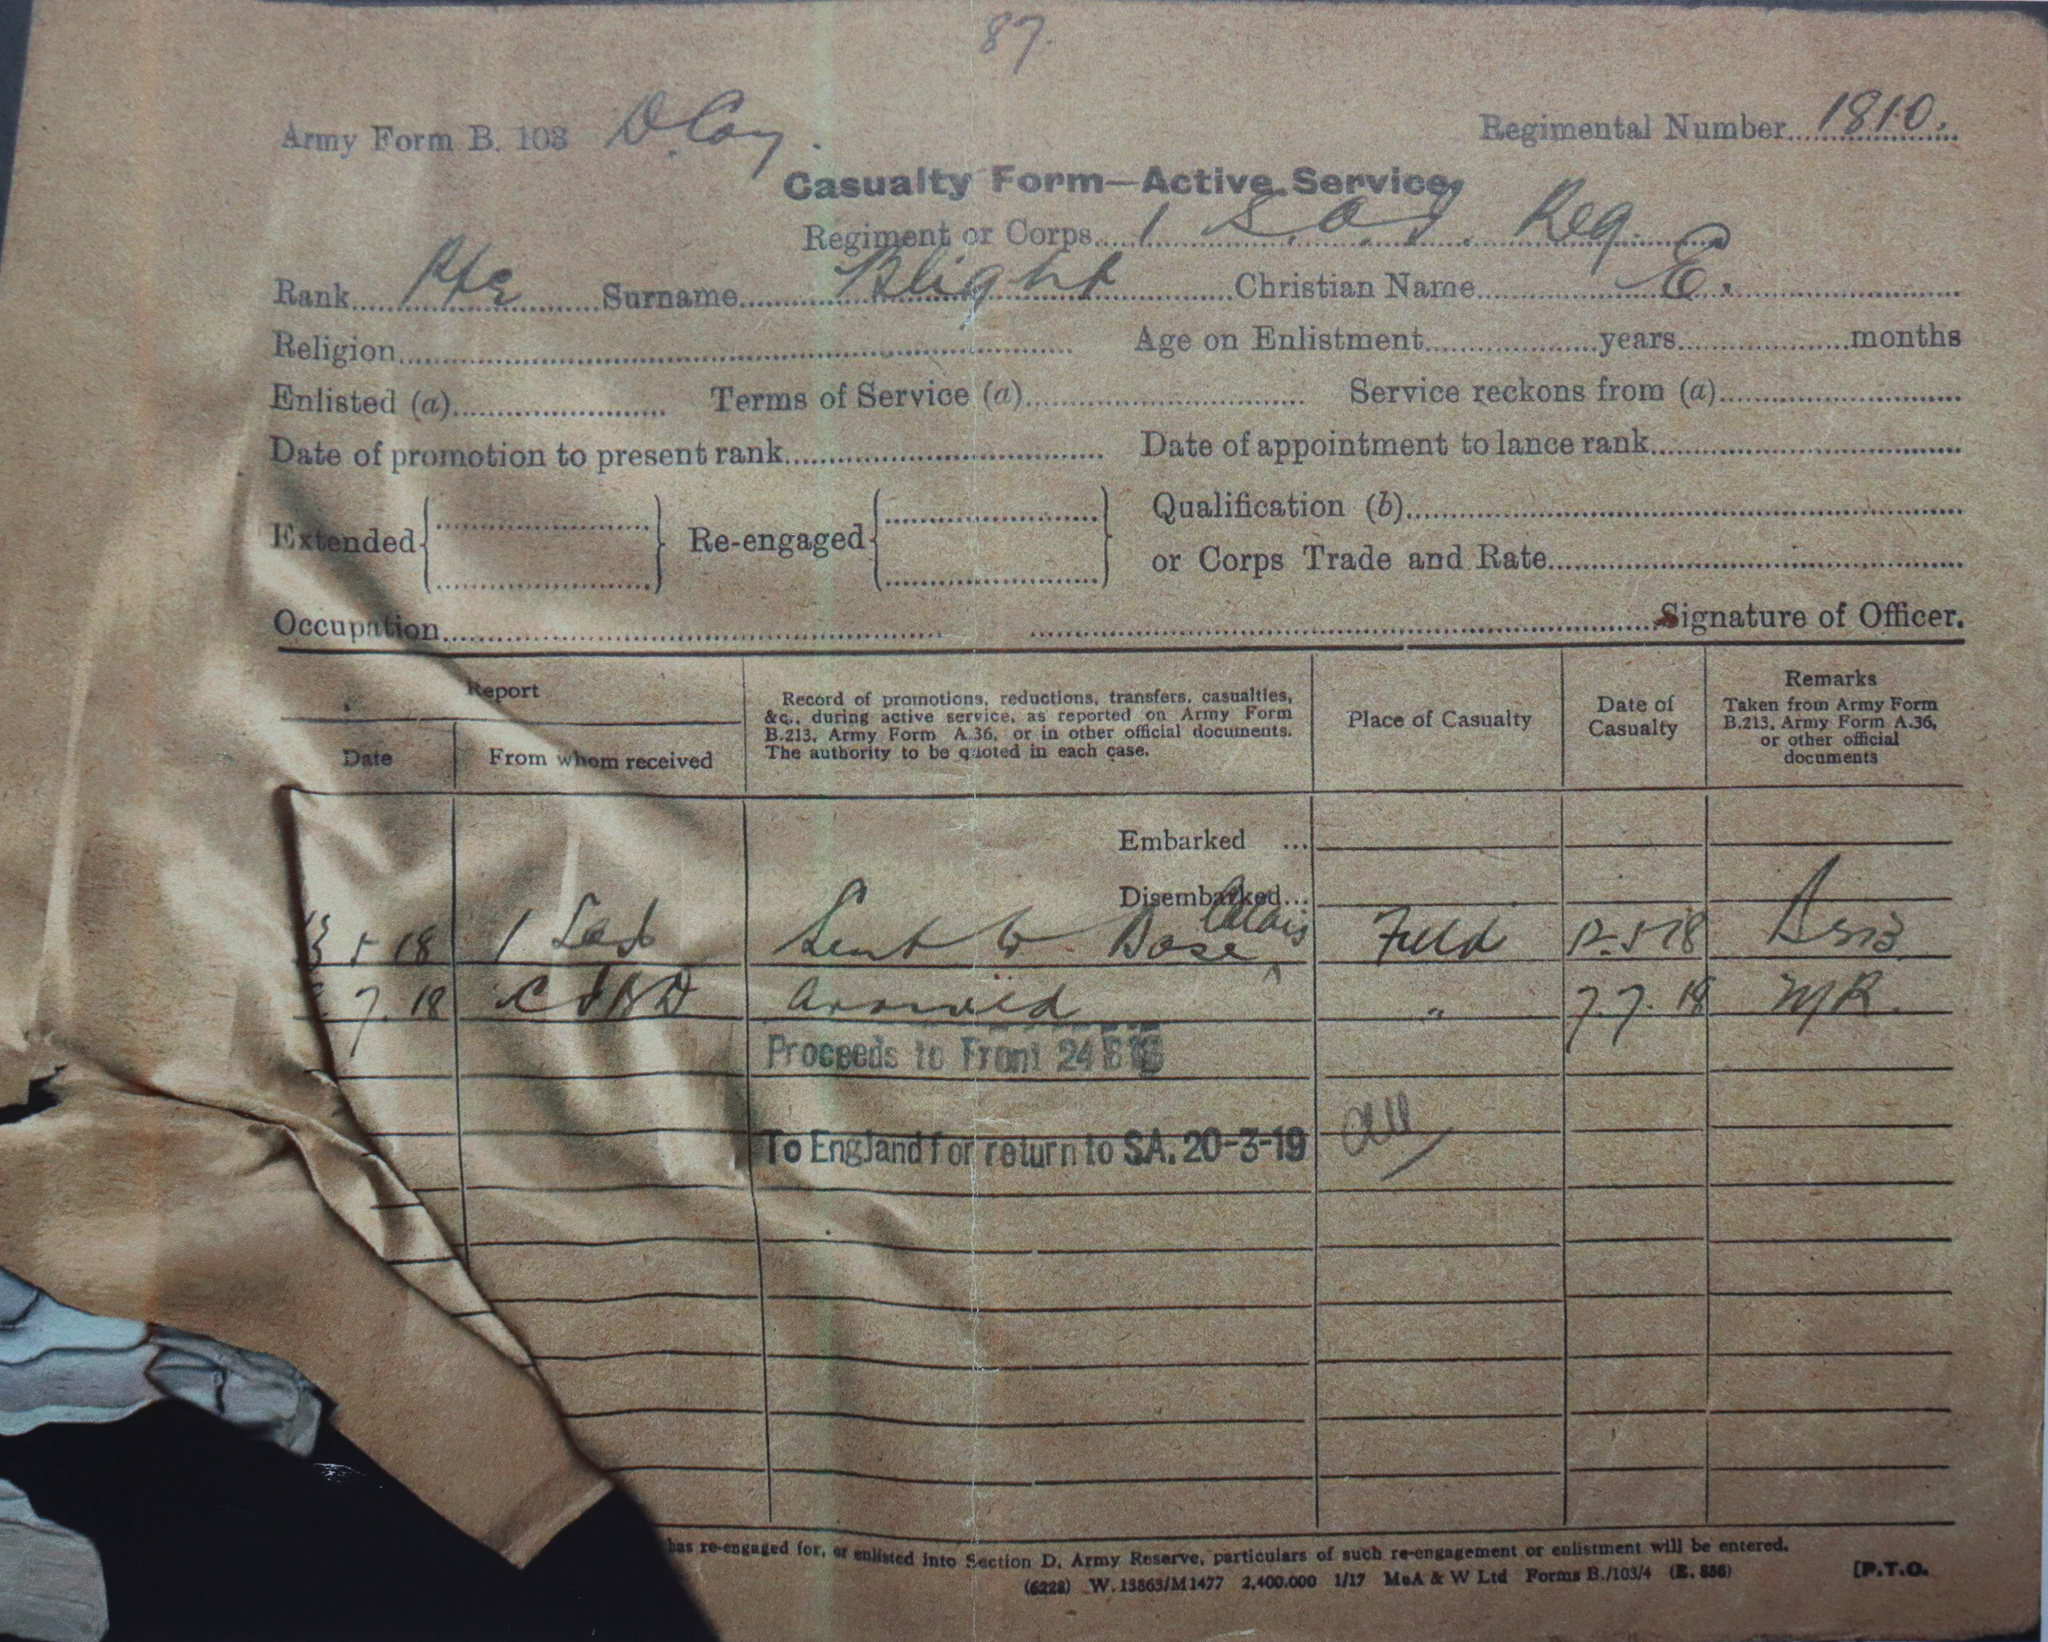 87.
Army Form B. 103 D. Coy. Regimental Number 1810.
Casualty Form—Active Service.
Regiment or Corps 1 S.A.I. Reg.
Rank Pte Surname Blight Christian Name E.
Religion Age on Enlistment years months
Enlisted (a) Terms of Service (a) Service reckons from (a)
Date of promotion to present rank Date of appointment to lance rank
Extended Re-engaged Qualification (b)
or Corps Trade and Rate
Occupation Signature of Officer.
Report
Date From whom received
Record of promotions, reductions, transfers, casualties,
&c., during active service, as reported on Army Form
B.213, Army Form A.36, or in other official documents.
The authority to be quoted in each case.
Place of Casualty
Date of
Casualty
Remarks
Taken from Army Form
B.213, Army Form A.36,
or other official
documents
Embarked ...
Disembarked...
5 18 1 Sent to Base Calais Field 5 18 B213
7. 18 Arrived " 7.7.18 MR.
Proceeds to Front 24
To England for return to S.A. 20-3-19
has re-engaged for, or enlisted into Section D, Army Reserve, particulars of such re-engagement or enlistment will be entered.
(6228) W. 13863/M1477 2,400,000 1/17 McA & W Ltd Forms B./103/4 (E. 836) [P.T.O.